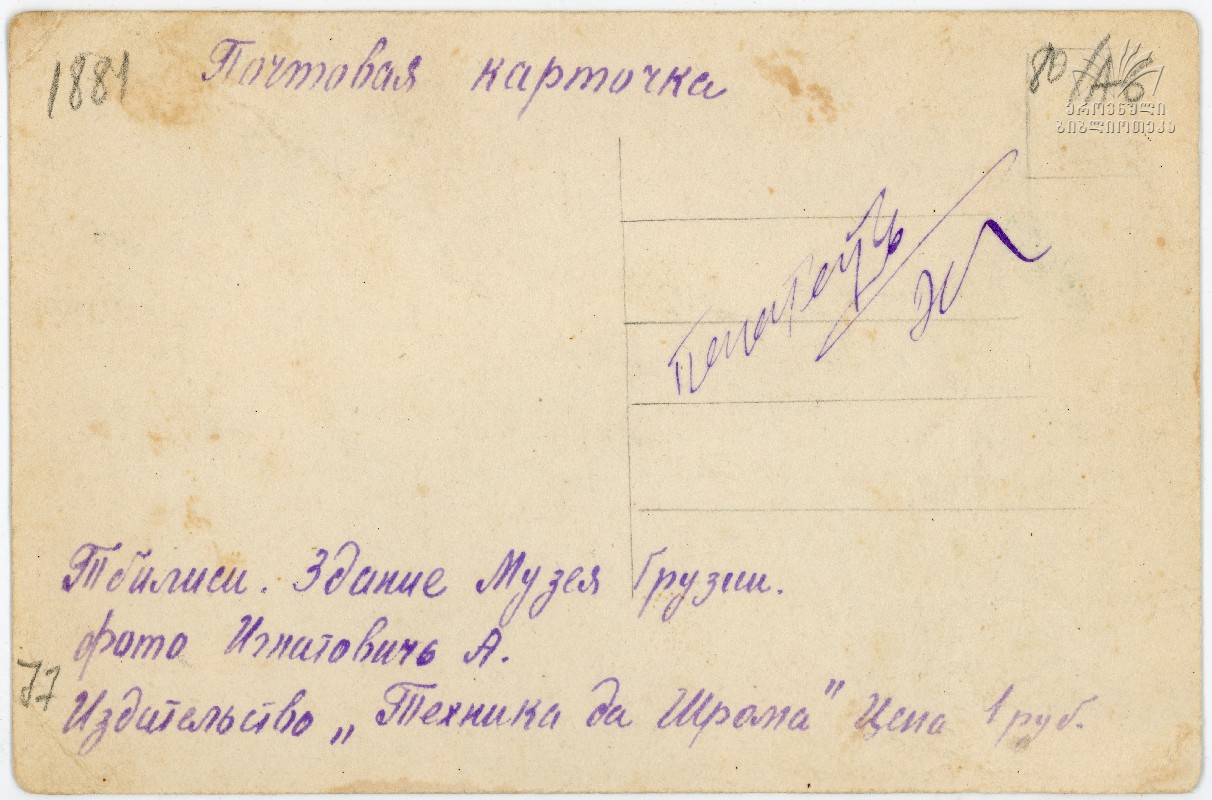 1881
Почтовая карточка
80
ეროვნული
ბიბლიოთეკა
Тбилиси. Здание Музея Грузии.
фото Игнатовичь А.
77
Издательство „Техника да Шрома" Цена 1 руб.